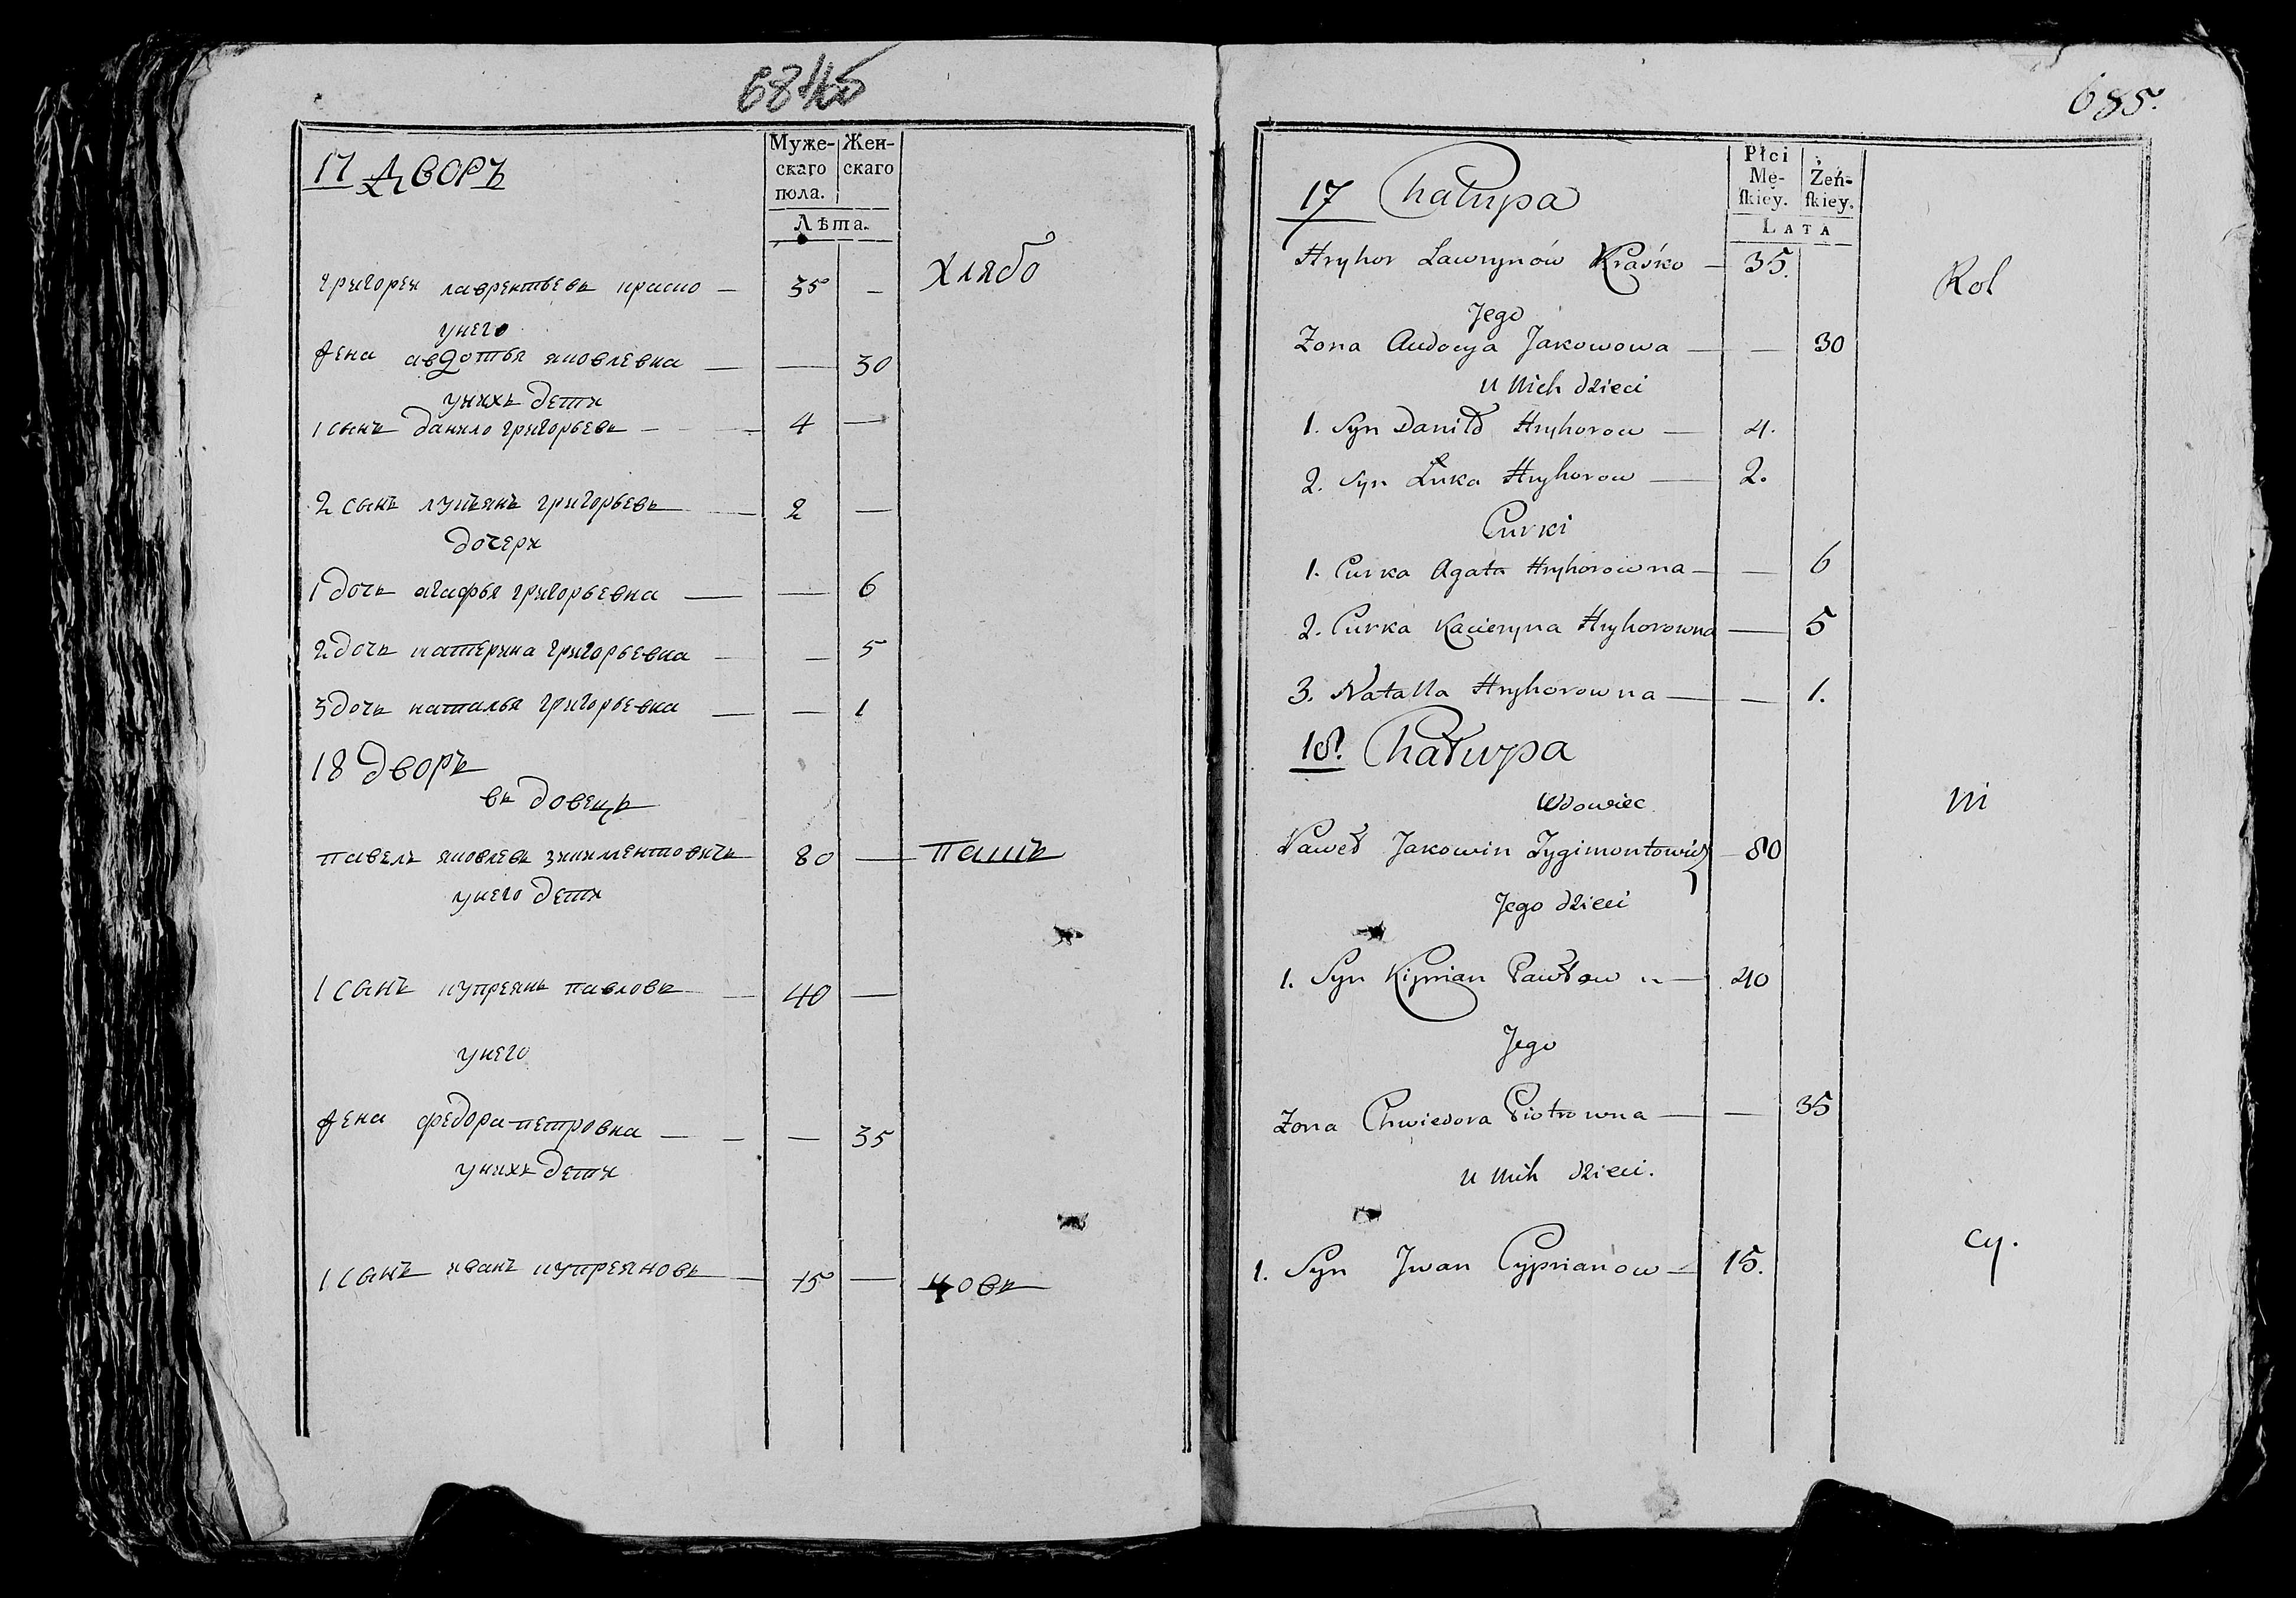 17 ДВОРЪ
Муже- Жен-
скаго скаго
пола.
Лѣта.
григореи лаврентьевъ краско — 35 — хлябо
унего
жена авдотья яковлевна — — 30
унихъ дети
1 сынъ данило григорьевъ — 4 —
2 сынъ лукъянъ григорьевъ — 2 —
дочери
1 дочь агафья григорьевна — — 6
2 дочь катерина григорьевна — — 5
3 дочь наталья григорьевна — — 1
18 дворъ
въдовецъ
павелъ яковлевъ зикиментовичъ 80 — пашъ
унего дети
1 сынъ купреянъ павловъ — 40 —
унего
жена федора петровна — — — 35
унихъ дети
1 сынъ иванъ купреяновъ — 15 — цовъ
685.
17 Chałupa
Płci
Mę- Żeń-
skiey. skiey.
LATA
Hryhor Lawrynów Kraśko — 35. Rol
Jego
Zona Audocya Jakowowa — — 30
u Nich dzieci
1. Syn Daniło Hryhorow — 4.
2. Syn Łuka Hryhorow — 2.
Curki
1. Curka Agata Hryhorowna — — 6
2. Curka Kacieryna Hryhorowna — 5
3. Natalla Hryhorowna — — 1.
18. Chałupa
Wdowiec ni
Paweł Jakowin Zygimontowicz — 80
Jego dzieci
1. Syn Kiprian Pawłow — 40
Jego
Zona Chwiedora Piotrowna — — 35
u Nich dzieci.
1. Syn Jwan Cyprianow — 15. cy.